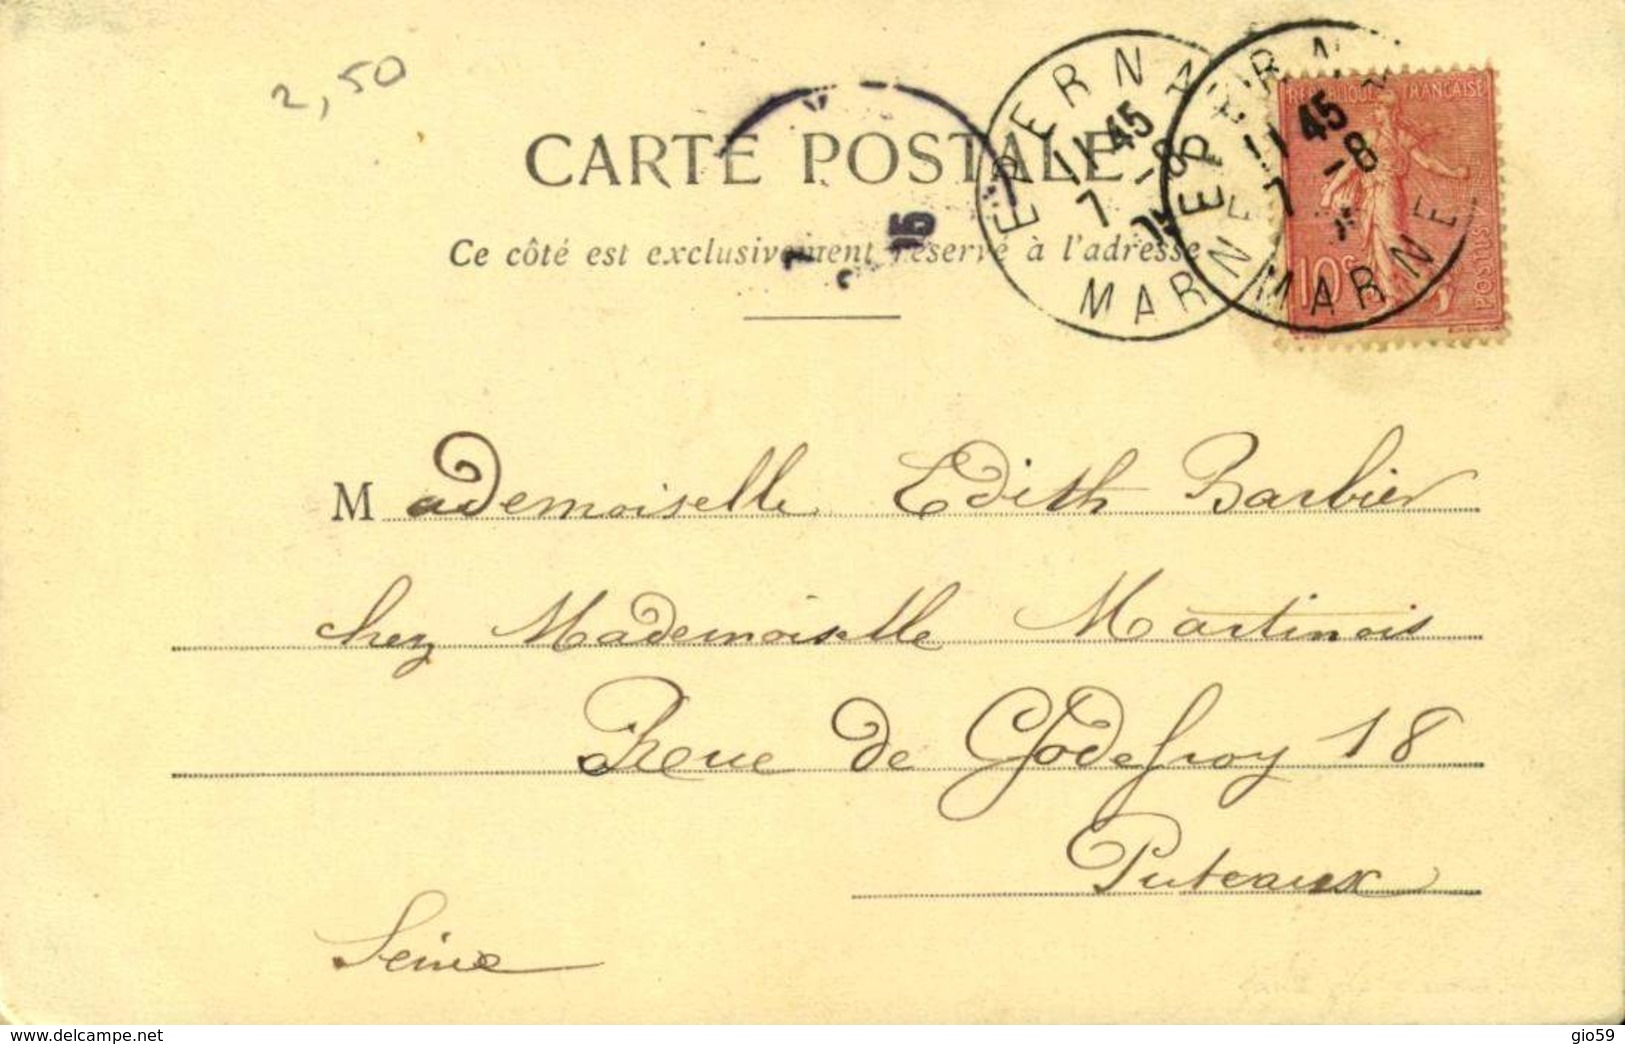 2,50
CARTE POSTALE
Ce côté est exclusivement réservé à l'adresse
EPERNAY
11 45
7 -8
MARNE
EPERNAY
11 45
7 -8
MARNE
REPUBLIQUE FRANÇAISE
10c
POSTES
15
Mademoiselle Edith Barbier
chez Mademoiselle Martinois
Rue de Godefroy 18
Puteaux
Seine
delcampe.net
gio59